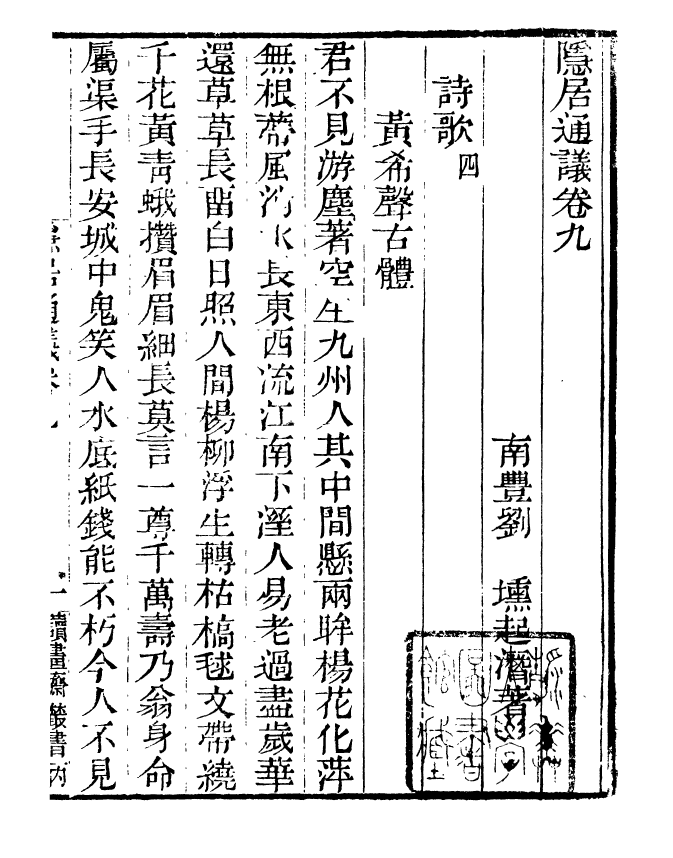 隱居通議卷九
南豐劉　壎起潛著
詩歌四
黃希聲古體
君不見游塵著空生九州人其中間懸兩眸楊花化萍
無根蔕風河水長東西流江南下溼人易老過盡歲華
還草草長留白日照人間楊柳浮生轉枯槁毬文帶繞
千花黃靑蛾攢眉眉細長莫言一尊千萬壽乃翁身命
屬渠手長安城中鬼笑人水底紙錢能不朽今人不見
隱居通議卷九
一
讀畫齋叢書丙